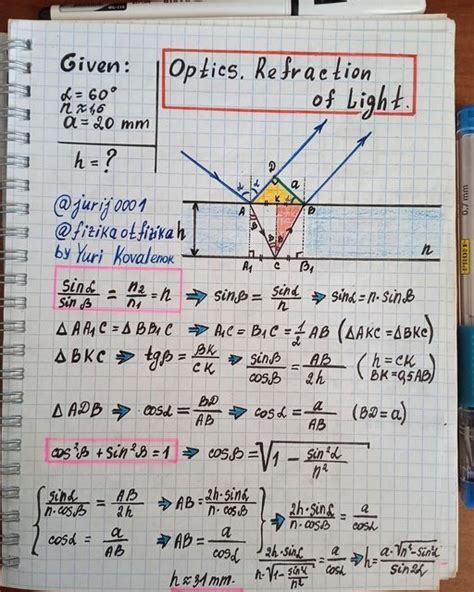 Given:
α = 60°
n ≈ 1,5
a = 20 mm
h = ?
Optics. Refraction
of Light.
@jurij0001
@fizikaotfizika
by Yuri Kovalenok
D
α α a
A K α B
h
β β β
A₁ C B₁ n
sinα/sinβ = n₂/n₁ = n ⇒ sinβ = sinα/n ⇒ sinα = n·sinβ
ΔAA₁C = ΔBB₁C ⇒ A₁C = B₁C = 1/2 AB (ΔAKC = ΔBKC)
ΔBKC ⇒ tgβ = BK/CK ⇒ sinβ/cosβ = AB/2h (h = CK BK = 0,5AB)
ΔADB ⇒ cosα = BD/AB ⇒ cosα = a/AB (BD = a)
cos²β + sin²β = 1 ⇒ cosβ = √(1 − sin²α/n²)
{ sinα/(n·cosβ) = AB/2h ⇒ AB = 2h·sinα/(n·cosβ) } ⇒ 2h·sinα/(n·cosβ) = a/cosα
cosα = a/AB ⇒ AB = a/cosα
2h·sinα/(n·√(1 − sin²α/n²)) = a/cosα ⇒ h = a·√(n² − sin²α)/sin2α
h ≈ 31 mm.